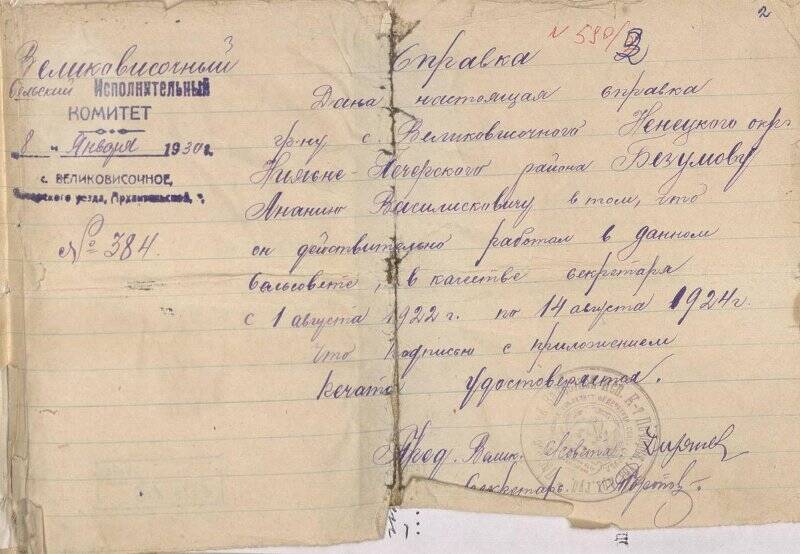 2
N 530/
Великовисочный
Сельский Исполнительный
КОМИТЕТ
8 " Января 1930 г.
с. ВЕЛИКОВИСОЧНОЕ,
Печорского уезда, Архангельской, г.
№ 384.
Справка
Дана настоящая справка
гр-ну с. Великовисочного Ненецкого окр.
Нижне-Печерского района Безумову
Ананию Василисковичу в том, что
он действительно работал в данном
сельсовете, в качестве секретаря
с 1 августа 1922 г. по 14 августа 1924 г.
что подписью с приложением
печати удостоверяется.
Пред. Велик. Совета
Секретарь